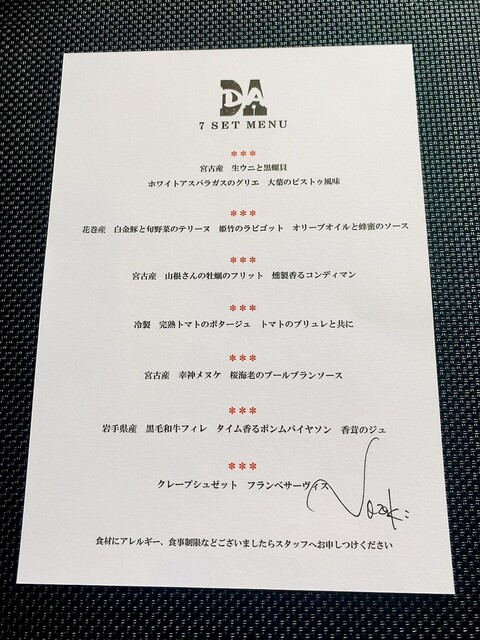 DA
7 SET MENU
***
宮古産 生ウニと黒螺貝
ホワイトアスパラガスのグリエ 大葉のピストゥ風味
***
花巻産 白金豚と旬野菜のテリーヌ 姫竹のラビゴット オリーブオイルと蜂蜜のソース
***
宮古産 山根さんの牡蠣のフリット 燻製香るコンディマン
***
冷製 完熟トマトのポタージュ トマトのブリュレと共に
***
宮古産 幸神メヌケ 桜海老のブールブランソース
***
岩手県産 黒毛和牛フィレ タイム香るポンムパイヤソン 香茸のジュ
***
クレープシュゼット フランベサーヴィス
Nozaki
食材にアレルギー、食事制限などございましたらスタッフへお申しつけください